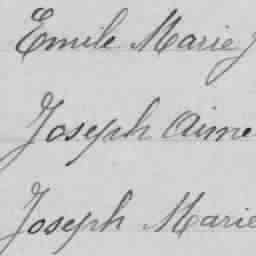 Emile Marie J
Joseph Aime
Joseph Marie